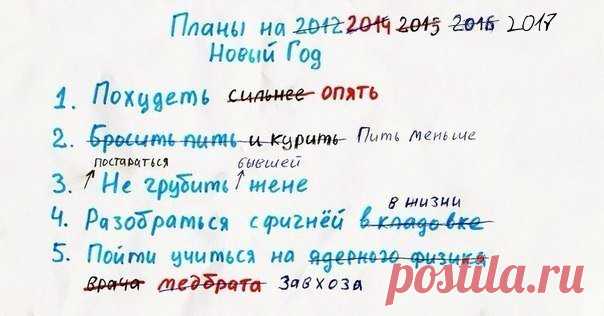 Планы на 2012 2014 2015 2016 2017
Новый Год
1. Похудеть сильнее опять
2. Бросить пить и курить Пить меньше
постараться бывшей
3. Не грубить жене
в жизни
4. Разобраться с фигнёй в кладовке
5. Пойти учиться на ядерного физика
врача медбрата завхоза
postila.ru